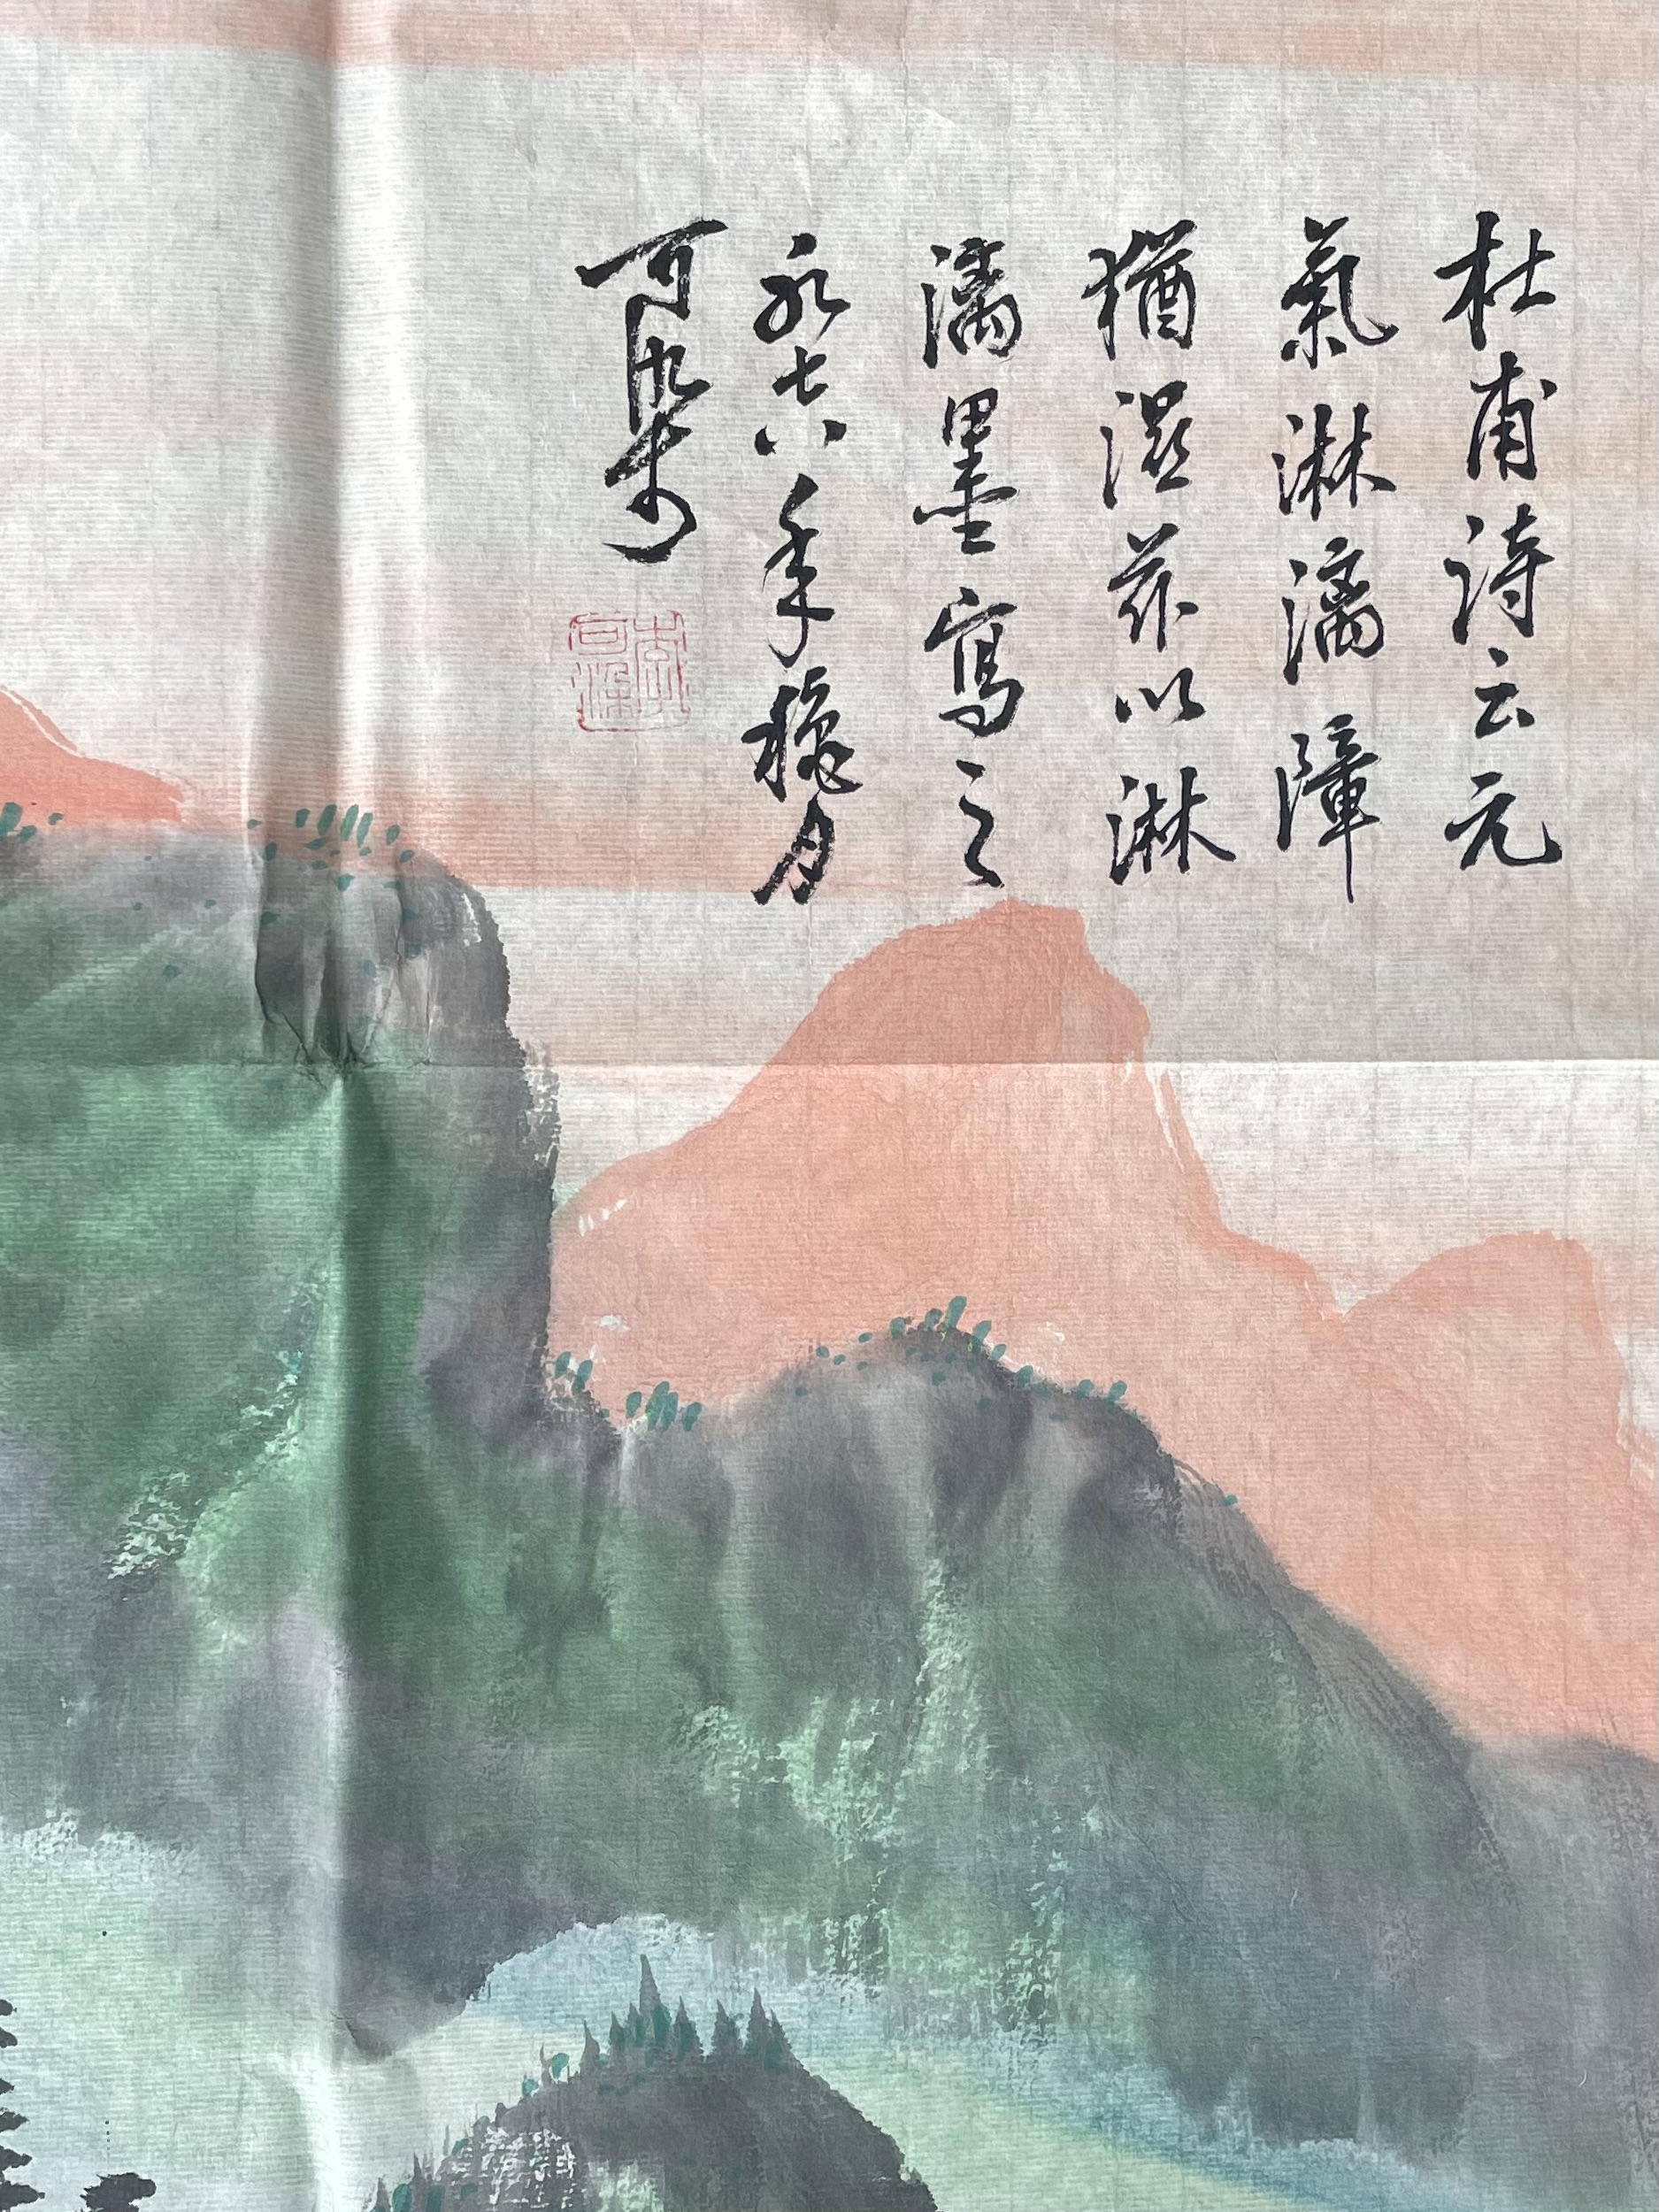 杜甫詩云元
氣淋漓障
猶濕茲以淋
漓墨寫之
七六年月
可染
李可染